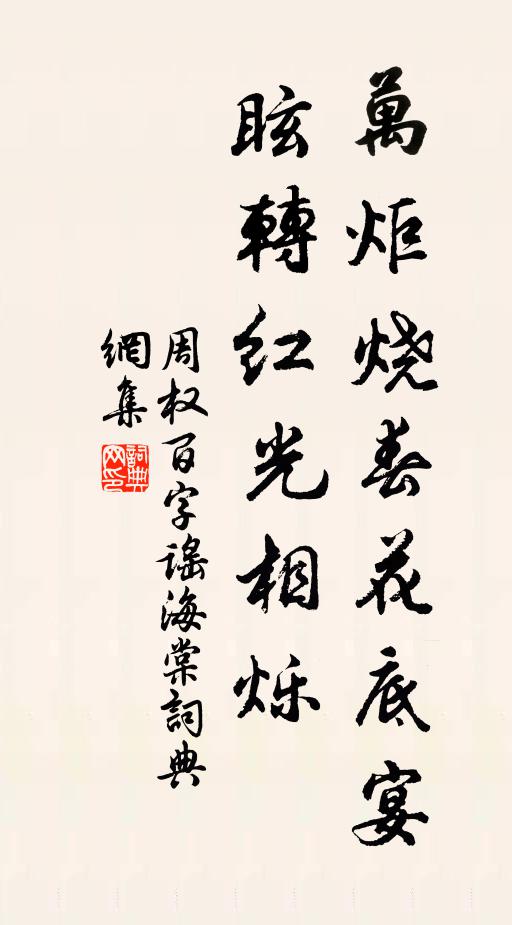 萬炬烧春花底宴
眩轉红光相烁
周权百字謡海棠詞典
網集
詞典网印